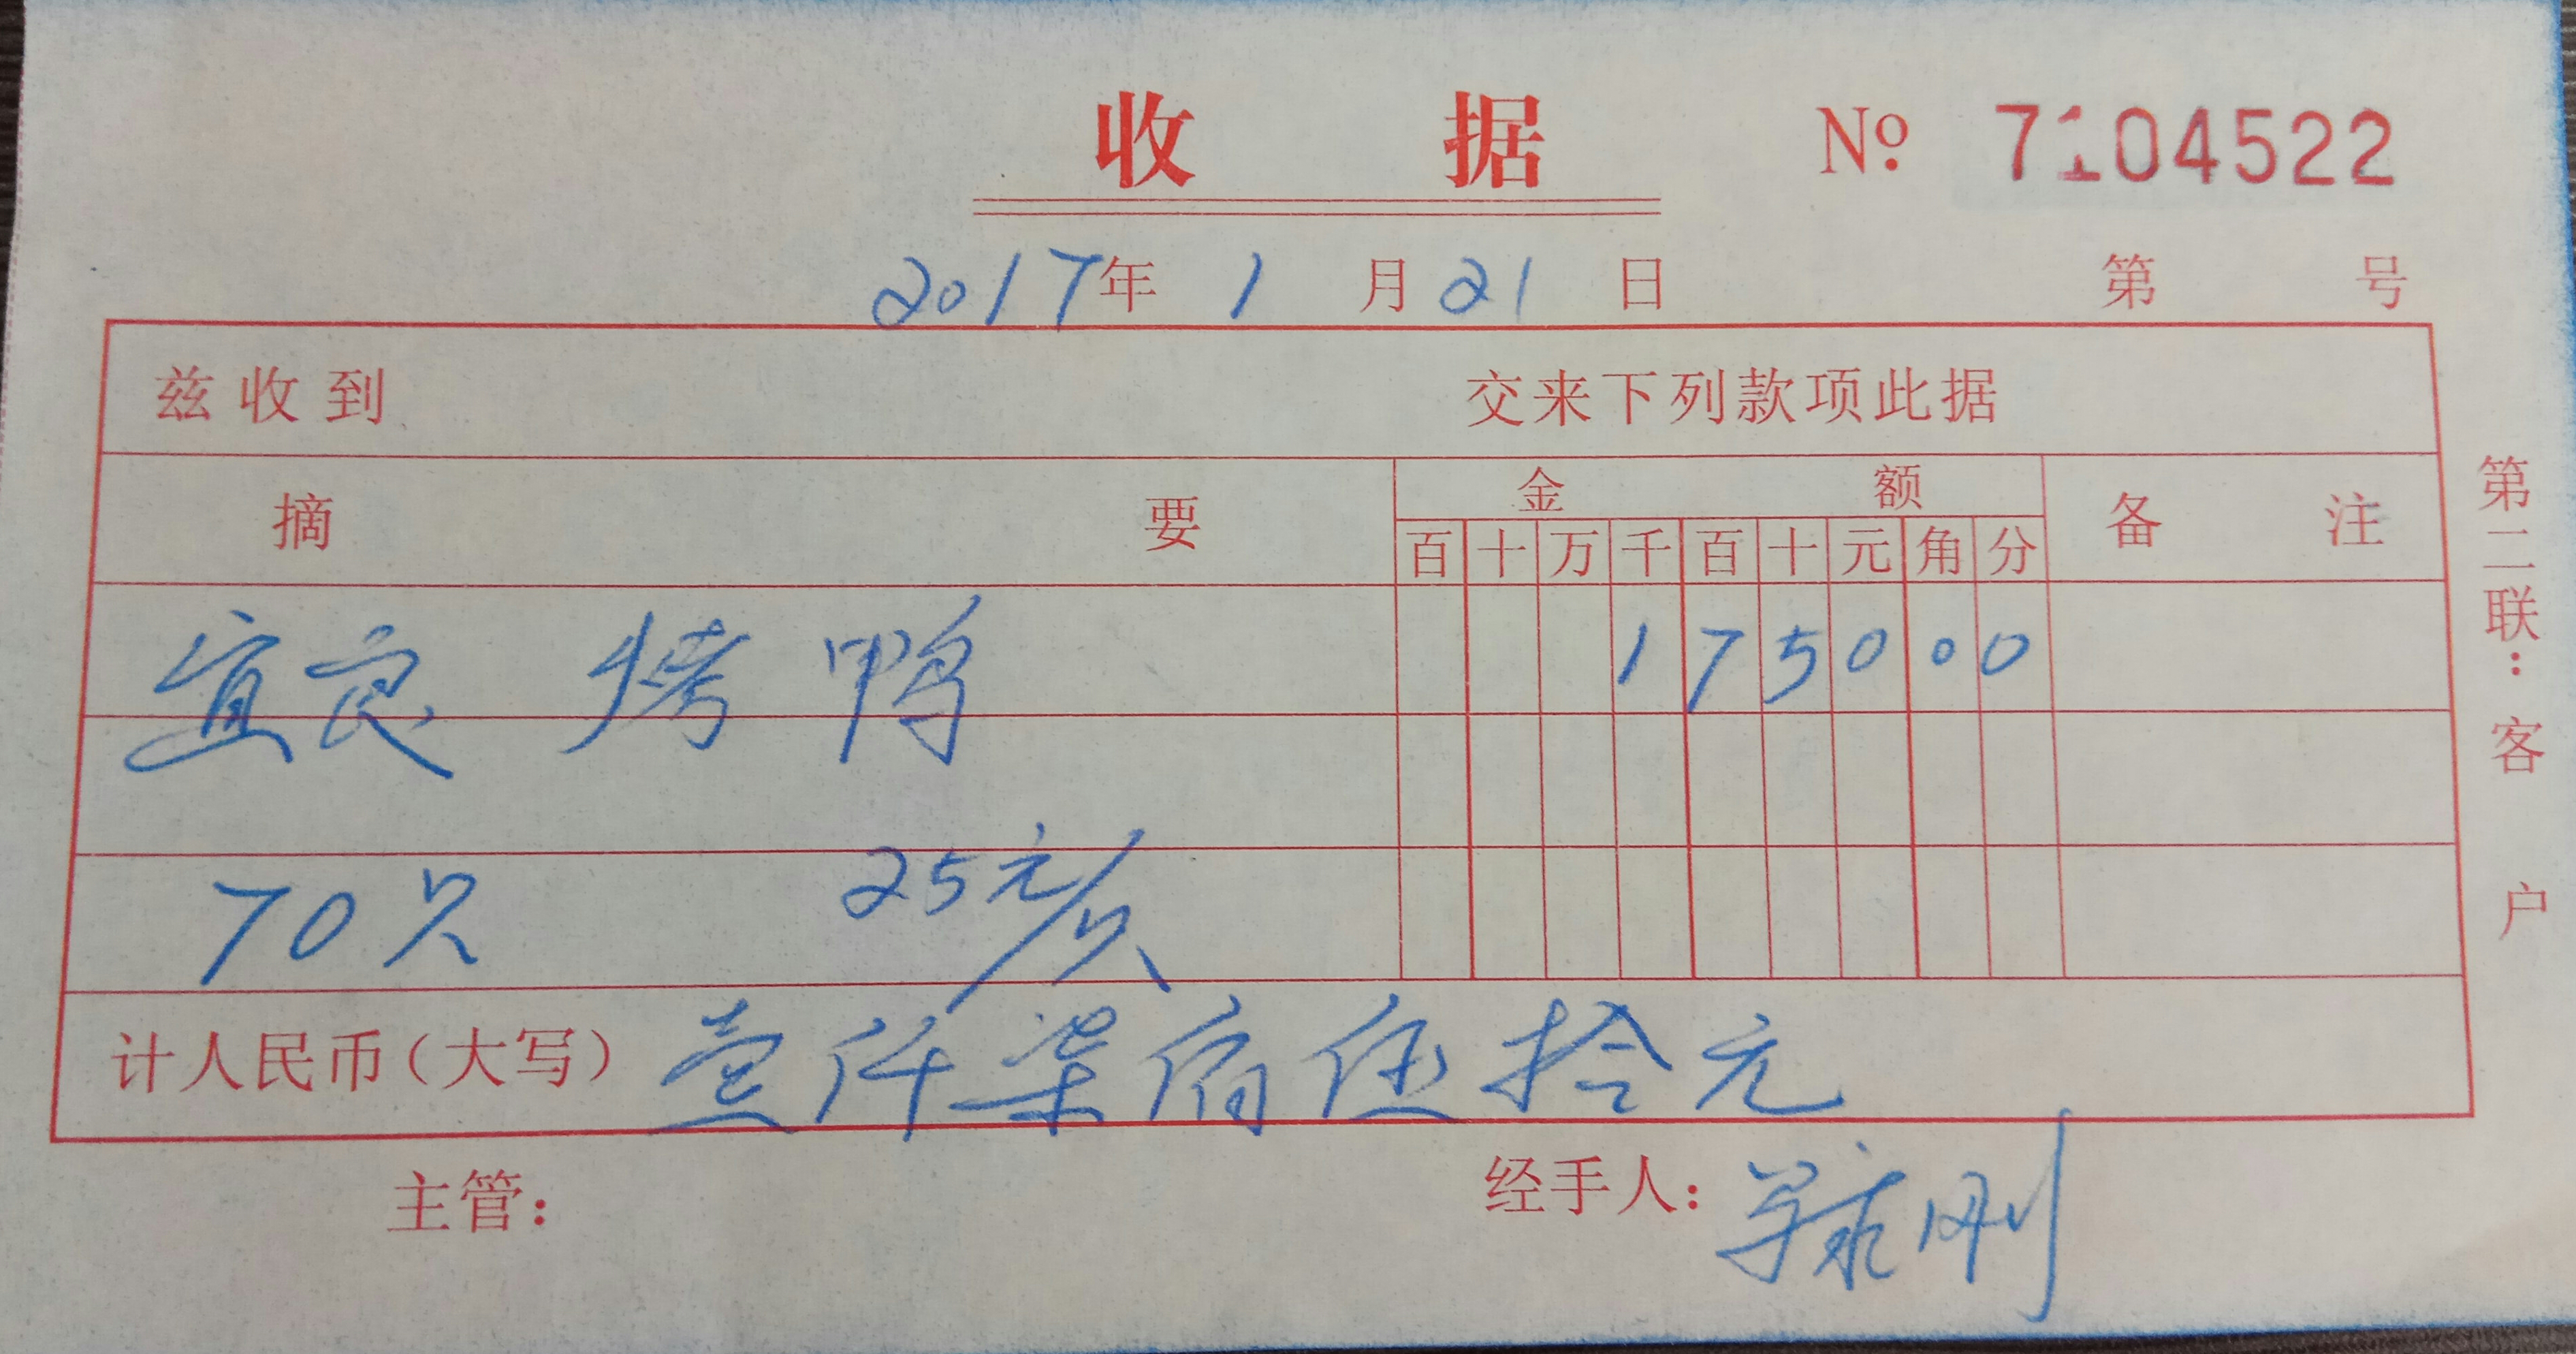 收 据 Nº 7104522
2017年 1 月 21 日 第 号
兹收到 交来下列款项此据
摘 要 金 额 备 注
百 十 万 千 百 十 元 角 分
宜良 烤鸭 1 7 5 0 0 0
70只 25元/只
计人民币(大写) 壹仟柒佰伍拾元
主管: 经手人: 刚
第二联:客户